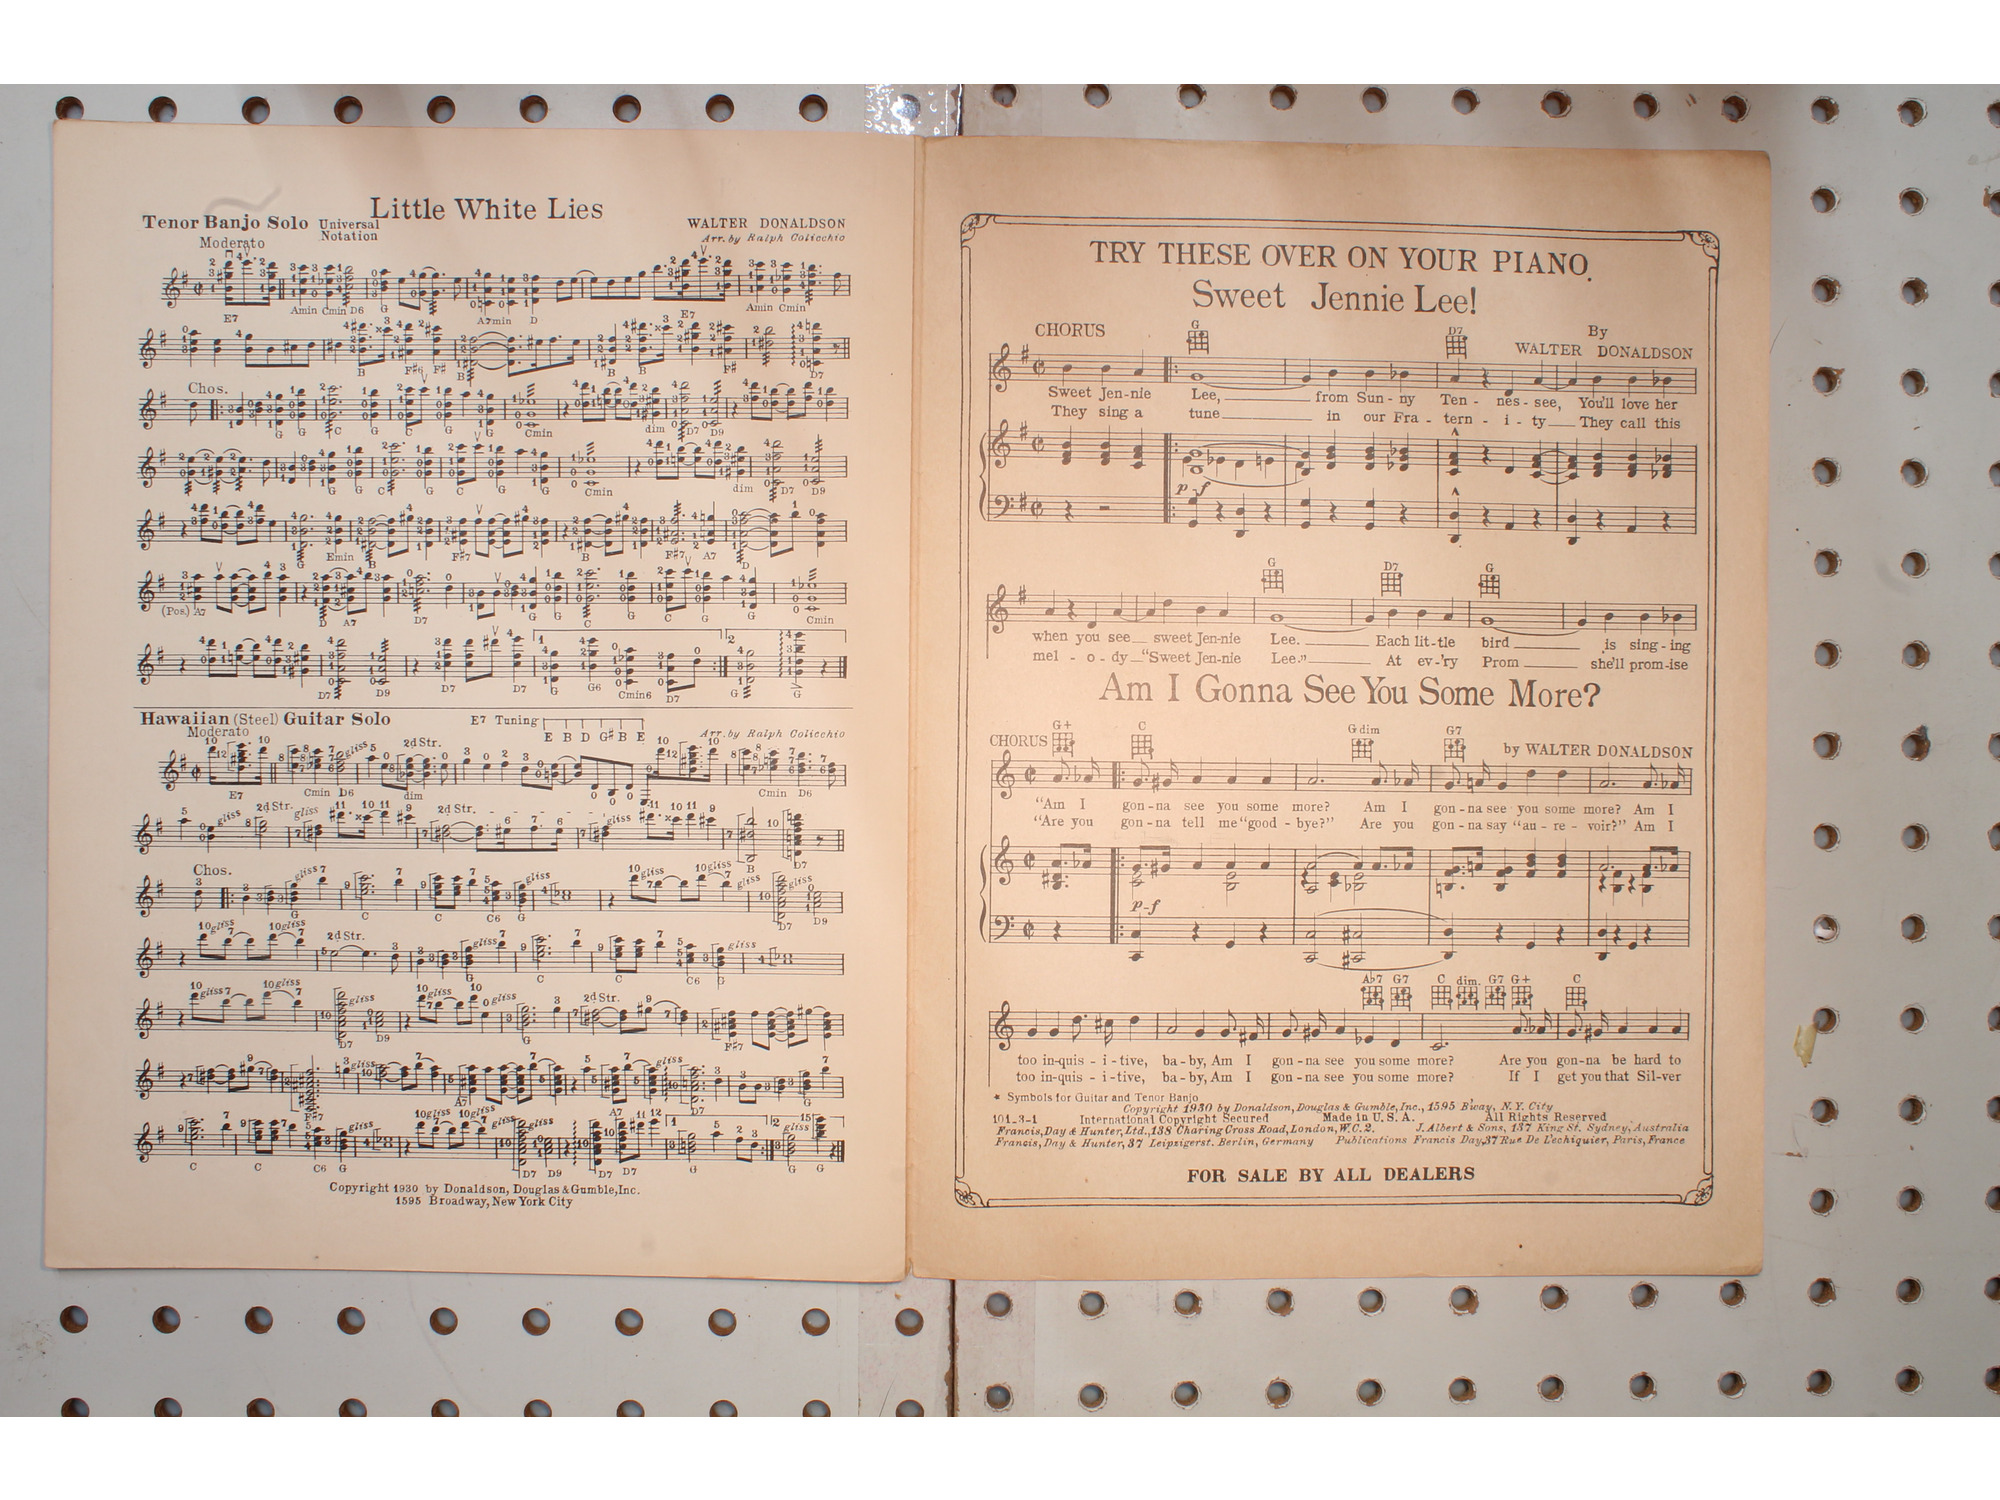 Little White Lies
Tenor Banjo Solo Universal Notation
WALTER DONALDSON
Arr. by Ralph Colicchio
Moderato
E7 Amin Cmin D6 G A7min D E7 Amin Cmin
B F#6 F# B B B F# D7
Chos.
G G C G C G Cmin dim D7 D9
G G C G C G G Cmin dim D7 D9
G Emin B F#7 B F#7 A7 D
(Pos.) A7 D A7 D7 G G C G C G Cmin
D7 D9 D7 D7 G G6 Cmin6 D7 G G
Hawaiian (Steel) Guitar Solo
E7 Tuning E B D G# B E
Arr. by Ralph Colicchio
Moderato
gliss 2d Str.
E7 Cmin D6 dim Cmin D6
gliss 2d Str. gliss 2d Str. gliss
B D7
Chos.
gliss gliss gliss gliss gliss gliss
G C C C6 G D7 D9
gliss gliss 2d Str. gliss gliss
G C C C6 G
gliss gliss gliss gliss gliss 2d Str. gliss
D7 D9 G F#7
gliss gliss
F#7 A7 D7
gliss gliss gliss gliss gliss gliss
C C C6 G D7 D9 A7 D7 D7 G G G
Copyright 1930 by Donaldson, Douglas & Gumble, Inc.
1595 Broadway, New York City
TRY THESE OVER ON YOUR PIANO.
Sweet Jennie Lee!
CHORUS
G D7
By
WALTER DONALDSON
Sweet Jen-nie Lee, from Sun-ny Ten-nes-see, You'll love her
They sing a tune in our Fra-tern-i-ty They call this
p-f
G D7 G
when you see sweet Jen-nie Lee. Each lit-tle bird is sing-ing
mel-o-dy "Sweet Jen-nie Lee." At ev-'ry Prom she'll prom-ise
Am I Gonna See You Some More?
CHORUS
G+ C G dim G7
by WALTER DONALDSON
"Am I gon-na see you some more? Am I gon-na see you some more? Am I
"Are you gon-na tell me "good-bye?" Are you gon-na say "au-re-voir?" Am I
p-f
Ab7 G7 C dim. G7 G+ C
too in-quis-i-tive, ba-by, Am I gon-na see you some more? Are you gon-na be hard to
too in-quis-i-tive, ba-by, Am I gon-na see you some more? If I get you that Sil-ver
* Symbols for Guitar and Tenor Banjo
Copyright 1930 by Donaldson, Douglas & Gumble, Inc., 1595 B'way, N.Y. City
101-3-1 International Copyright Secured Made in U.S.A. All Rights Reserved
Francis, Day & Hunter, Ltd., 138 Charing Cross Road, London, W.C. 2. J. Albert & Sons, 137 King St. Sydney, Australia
Francis, Day & Hunter, 37 Leipzigerst. Berlin, Germany Publications Francis Day, 37 Rue De L'echiquier, Paris, France
FOR SALE BY ALL DEALERS